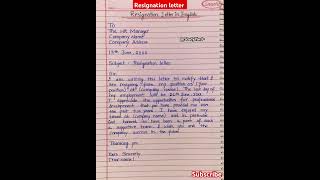 Resignation letter
Resignation Letter In English
To
The HR Manager
Company Name
Company Address
13th June,
Subject : Resignation letter
Sir,
I am writing this letter to notify that I
am resigning from my position as (your
position) at (company name). The last day of
my employment will be 26th June,
I appreciate the opportunities for professional
development that you have provided me over
the past two years. I have enjoyed my
tenure at (company name) and in particular
feel honored to have been a part of such
a supportive team. I wish you and the
company success in the future.
Thanking you
Yours Sincerely
(Your name)
Subscribe